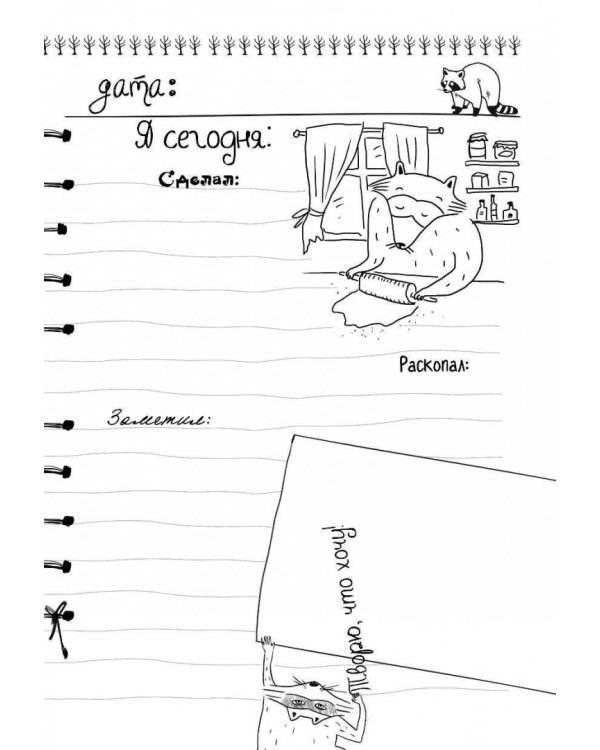 дата:
Я сегодня:
Сделал:
Раскопал:
Заметил:
Творю, что хочу!